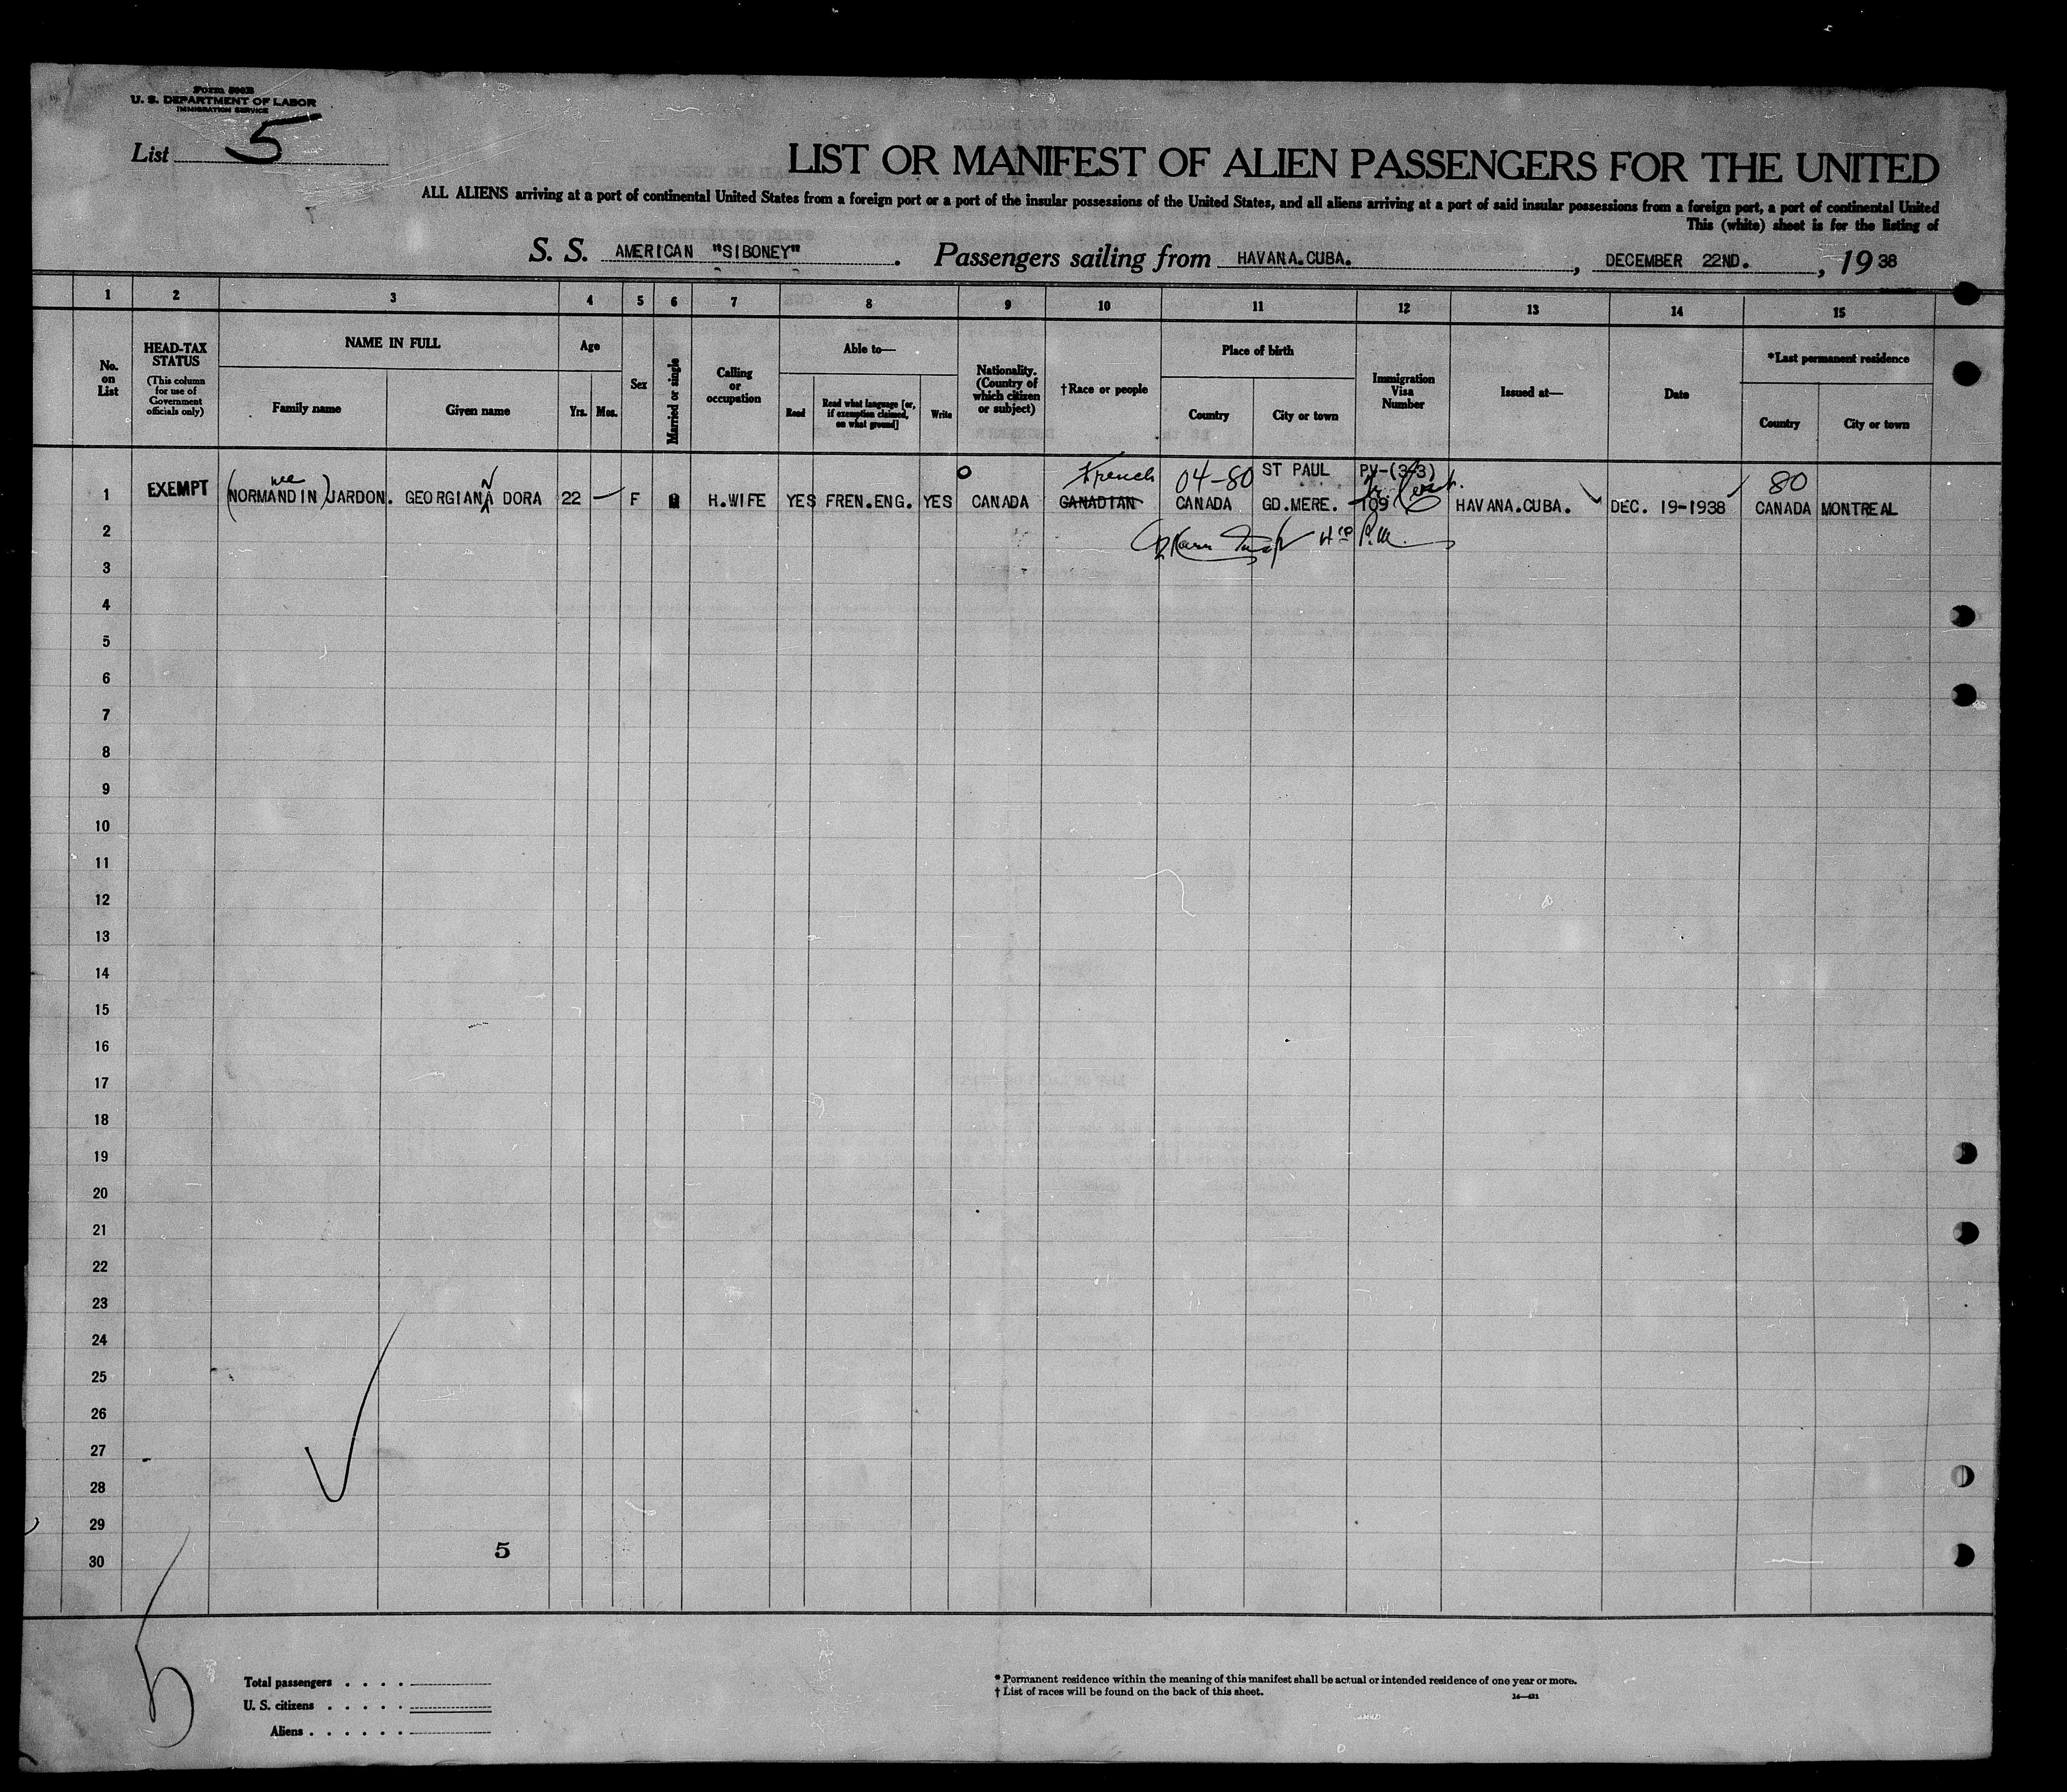 Form 500B
U. S. DEPARTMENT OF LABOR
IMMIGRATION SERVICE
List 5
LIST OR MANIFEST OF ALIEN PASSENGERS FOR THE UNITED
ALL ALIENS arriving at a port of continental United States from a foreign port or a port of the insular possessions of the United States, and all aliens arriving at a port of said insular possessions from a foreign port, a port of continental United
This (white) sheet is for the listing of
S. S. AMERICAN "SIBONEY". Passengers sailing from HAVANA.CUBA., DECEMBER 22ND., 1938
1 2 3 4 5 6 7 8 9 10 11 12 13 14 15
No. on List
HEAD-TAX STATUS
(This column for use of Government officials only)
NAME IN FULL
Family name
Given name
Age
Yrs.
Mos.
Sex
Married or single
Calling or occupation
Able to—
Read
Read what language [or, if exemption claimed, on what ground]
Write
Nationality. (Country of which citizen or subject)
†Race or people
Place of birth
Country
City or town
Immigration Visa Number
Issued at—
Date
*Last permanent residence
Country
City or town
née N French 04-80 ST PAUL PV-(3/3) 80
1 EXEMPT (NORMANDIN) JARDON. GEORGIANA DORA 22 — F H.WIFE YES FREN.ENG. YES CANADA CANADIAN CANADA GD.MERE. 109 HAVANA.CUBA. DEC. 19-1938 CANADA MONTREAL
2
3
4
5
6
7
8
9
10
11
12
13
14
15
16
17
18
19
20
21
22
23
24
25
26
27
28
29
30
5
5
Total passengers . . . .
U. S. citizens . . . . .
Aliens . . . . . .
* Permanent residence within the meaning of this manifest shall be actual or intended residence of one year or more.
† List of races will be found on the back of this sheet.